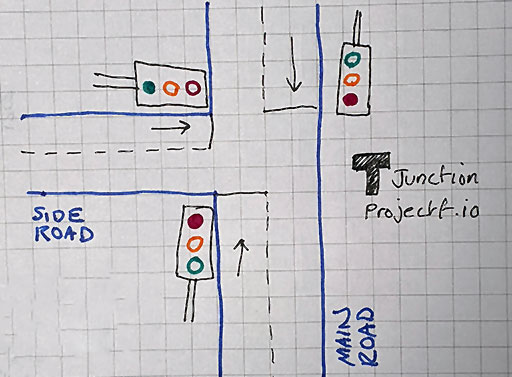 T Junction
Projectf.io
SIDE
ROAD
MAIN
ROAD